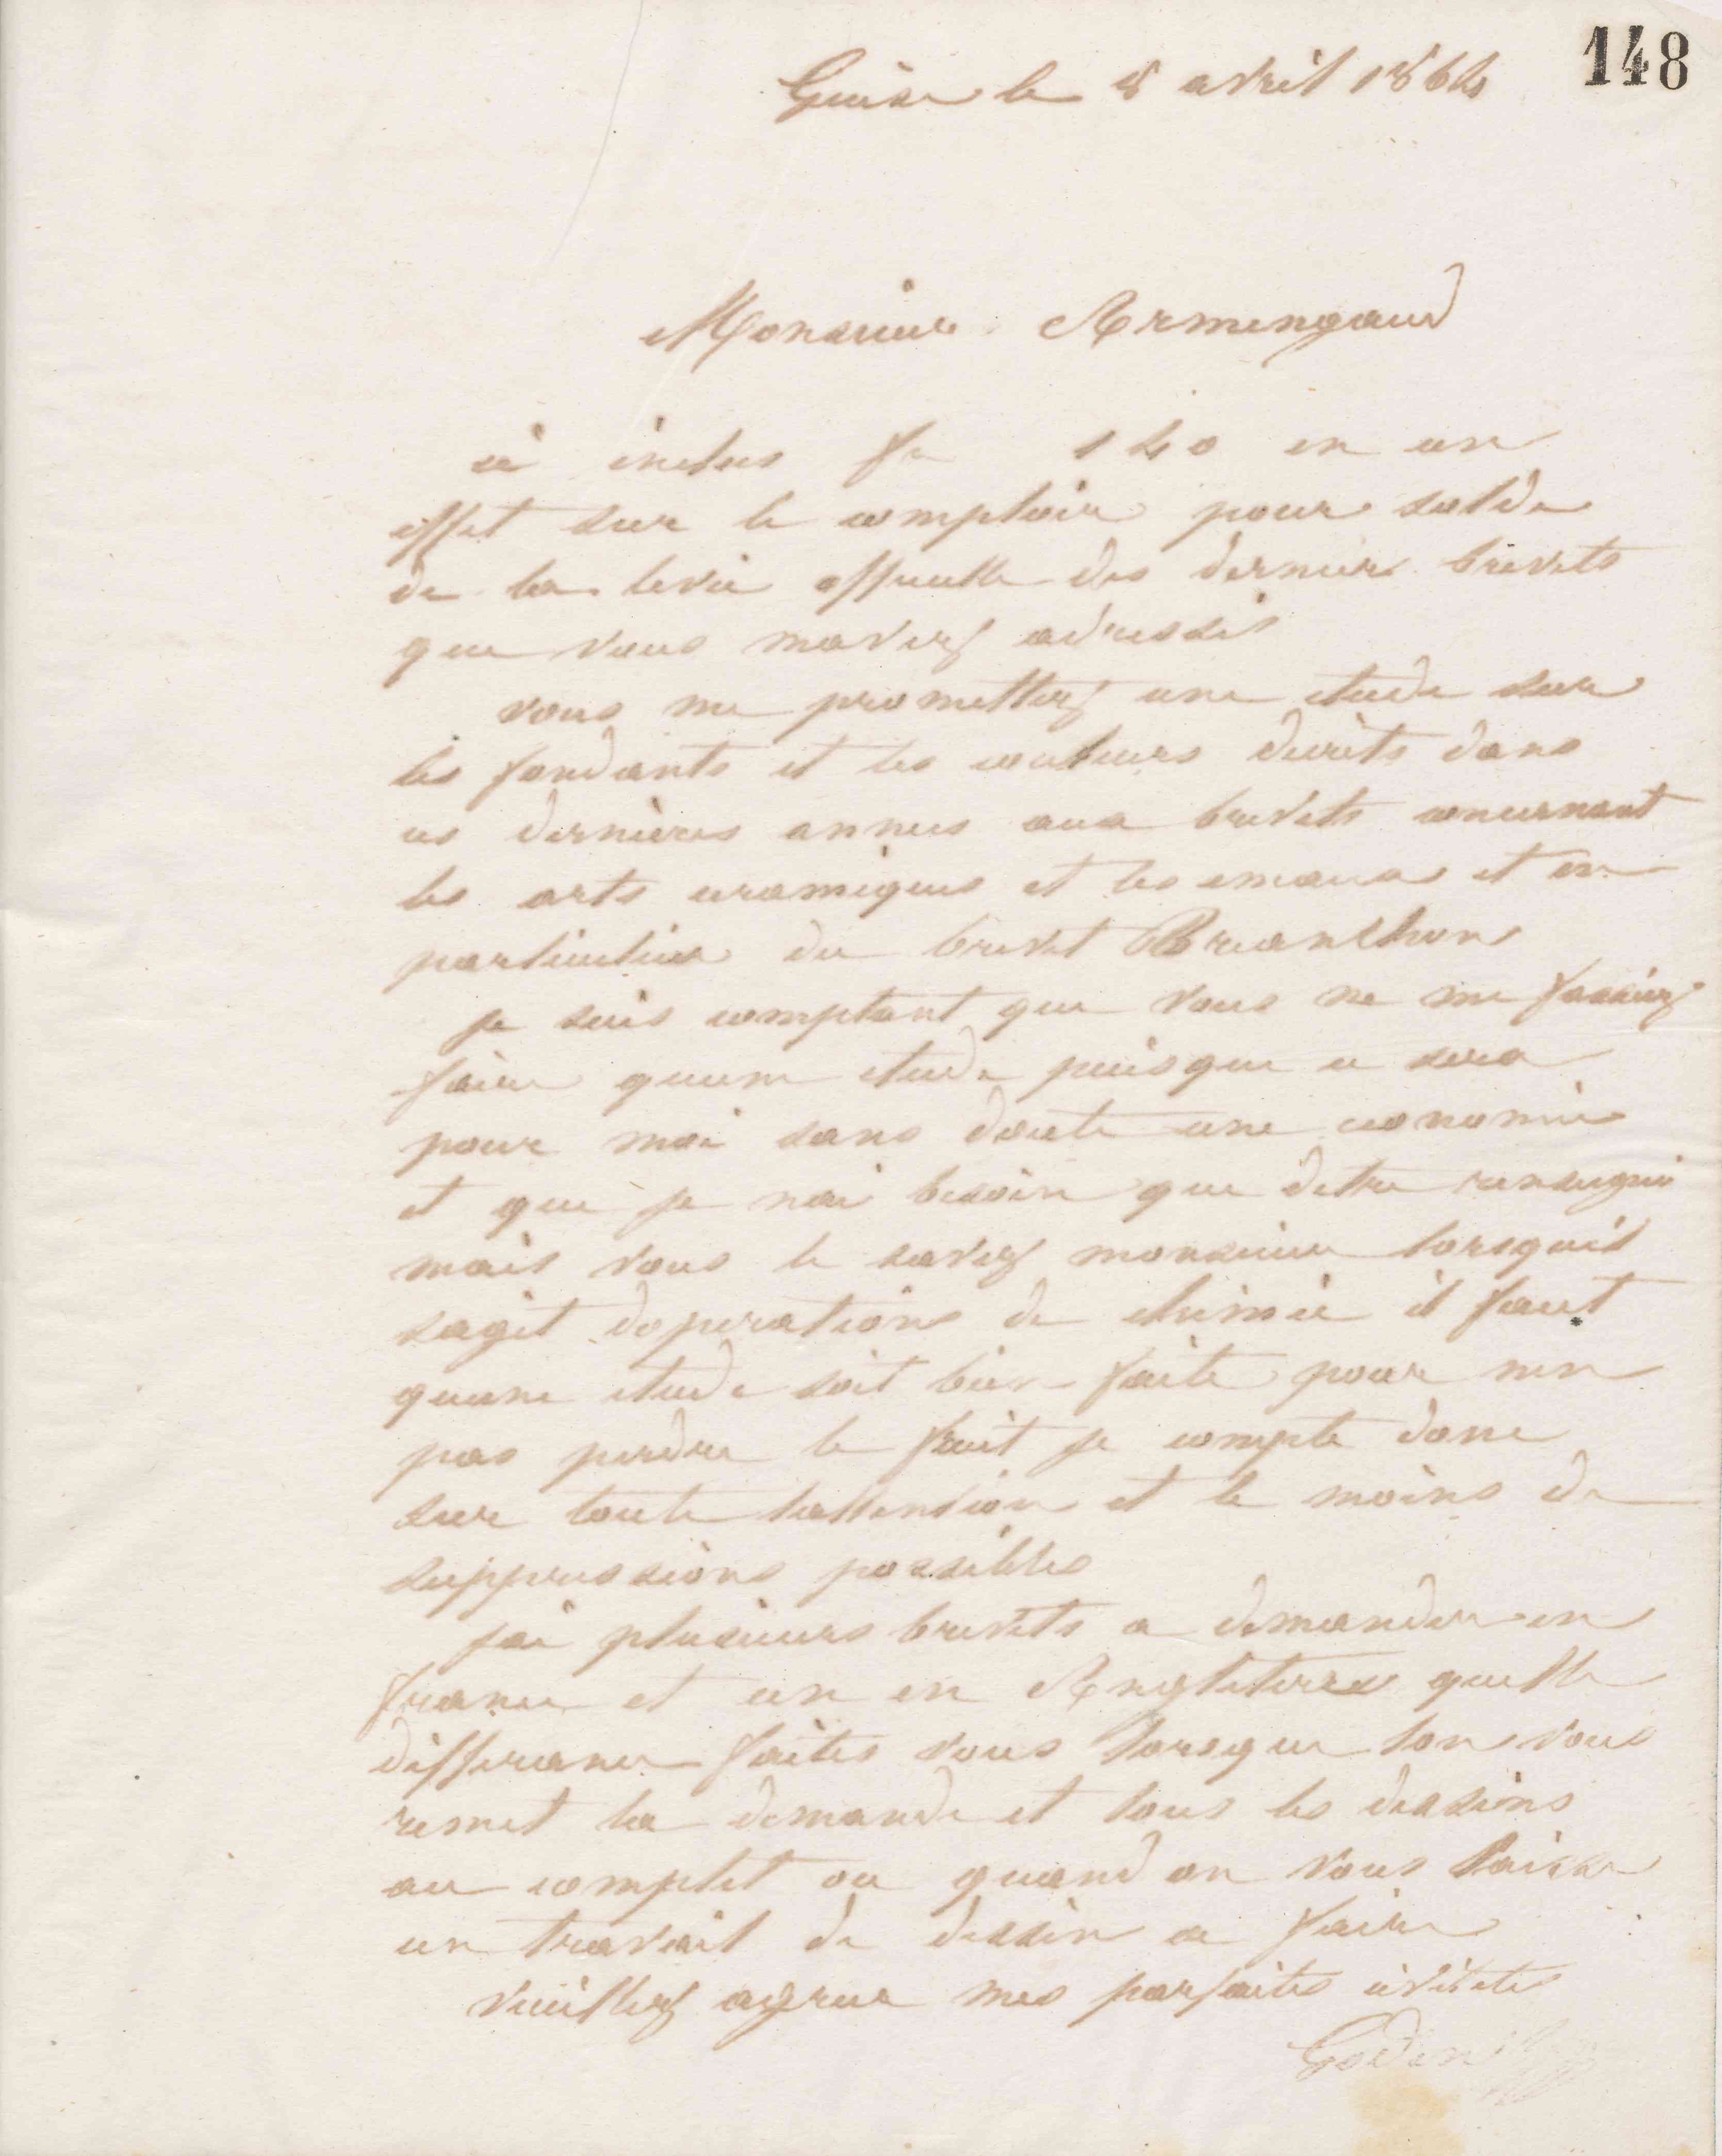 148
Guise le 8 avril 1864
Monsieur Armengaud
ci inclus fr 140 en un
effet sur le comptoir pour solde
de la levée officielle des derniers brevets
que vous mavez adressés
vous me promettez une etude sur
les fondants et les couleurs decrits dans
ces dernières annees aux brevets concernant
les arts ceramiques et les emaux et en
particulier du brevet Brianchon
je suis comptant que vous ne me fassiez
faire quune etude puisque ce sera
pour moi sans doute une economie
et que je nai besoin que detre renseigné
mais vous le savez monsieur lorsquil
sagit doperations de chimie il faut
quune etude soit bien faite pour nen
pas perdre le fruit je compte donc
sur toute lattention et le moins de
suppressions possibles
jai plusieurs brevets a demander en
france et un en Angleterre quelle
differance faites vous lorsque lon vous
remet la demande et tous les dessins
au complet ou quand on vous laisse
un travail de dessin a faire
veuillez agreer mes parfaites civilités
Godin